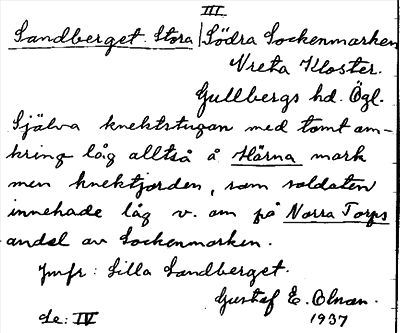 III
Sandberget Stora / Södra Sockenmarken
Vreta Kloster.
Gullbergs hd. Ögl.
Själva knektstugan med tomt om-
kring låg alltså å Härna mark
men knektjorden, som soldaten
innehade låg v. om på Norra Torps
andel av Sockenmarken.
Jmfr: Lilla Sandberget.
Gustaf E. Olman.
de: IV 1937